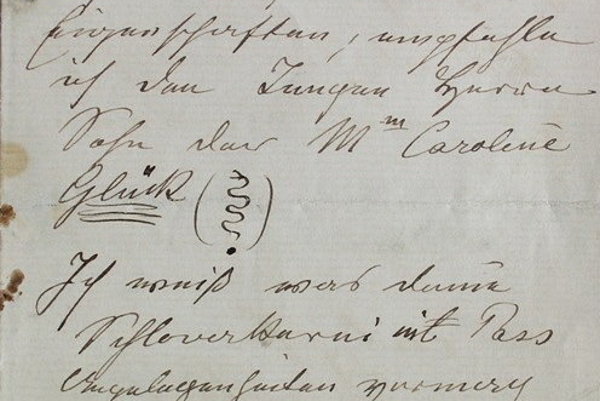 Eigenschaften, empfehle
ich den Jungen Herrn
Sohn der Mm Caroline
Glück (!)
Ich weiß was deine
in Pass
Angelegenheiten vermag